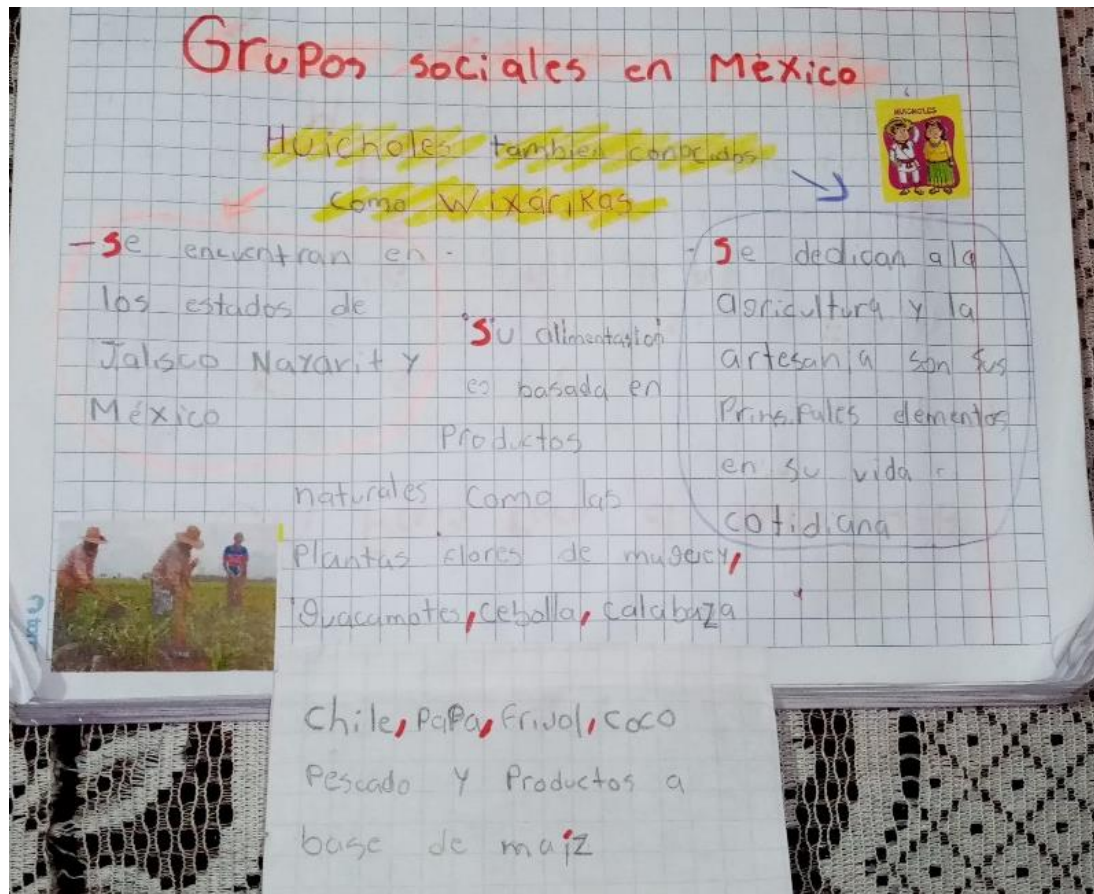 Grupos sociales en México
HUICHOLES
Huicholes tambien conocidos
como Wixárikas
- Se encuentran en -
los estados de
Jalisco Nayarit y
México
Su alimentasion
es basada en
Productos
naturales como las
Plantas flores de
guacamotes, cebolla, calabaza
Chile, PaPa, Frijol, coco
Pescado y Productos a
base de maíz
- Se dedican a la
agricultura y la
artesania son sus
Prinsipales elementos
en su vida
cotidiana